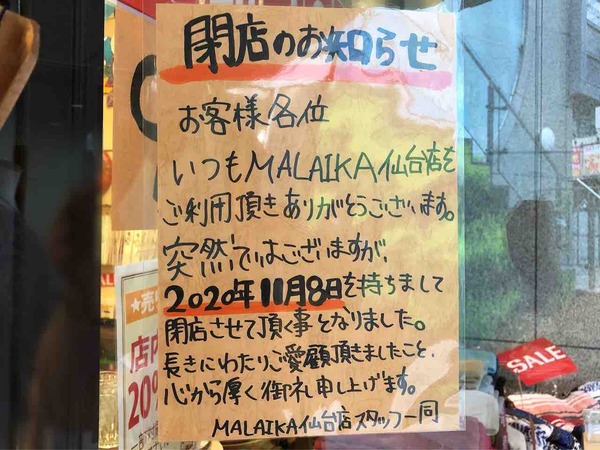 閉店のお知らせ
お客様各位
いつもMALAIKA仙台店を
ご利用頂きありがとうございます。
突然ではございますが、
2020年11月8日を持ちまして
閉店させて頂く事となりました。
長きにわたりご愛顧頂きましたこと、
心から厚く御礼申し上げます。
MALAIKA仙台店スタッフ一同
★売
店
20
SALE